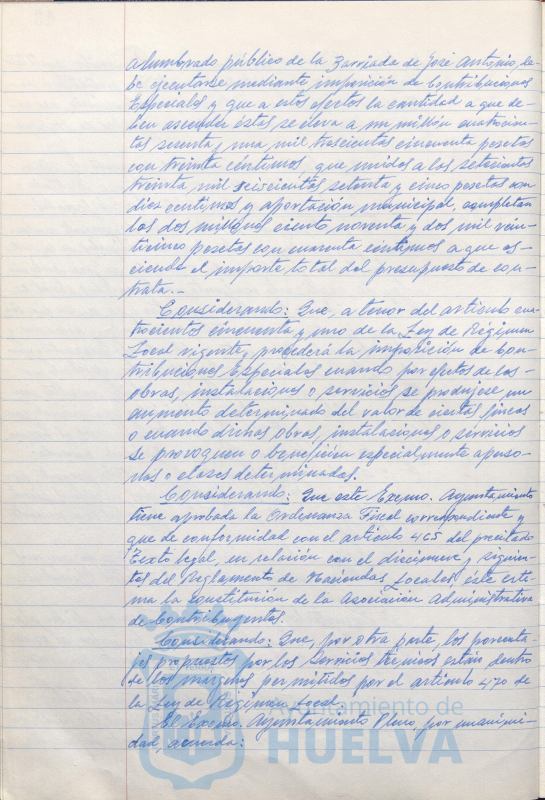 alumbrado público de la Barriada de José Antonio, de-
be ejecutarse mediante imposición de Contribuciones
Especiales y que a estos efectos la cantidad a que de-
ben ascender éstas se eleva a un millón cuatrocien-
tas sesenta y una mil trescientas cincuenta pesetas
con treinta céntimos, que unidos a las setecientas
treinta mil seiscientas setenta y cinco pesetas con
diez centimos y aportación municipal, completan
las dos millones ciento noventa y dos mil vein-
ticinco pesetas con cuarenta céntimos a que as-
ciende el importe total del presupuesto de con-
trata.-
Considerando: Que, a tenor del articulo cua-
trocientos cincuenta y uno de la Ley de Régimen
Local vigente, procederá la imposición de Con-
tribuciones Especiales cuando por efectos de las
obras, instalaciones o servicios se produjese un
aumento determinado del valor de ciertas fincas
o cuando dichas obras, instalaciones o servicios
se provoquen o beneficien especialmente a perso-
nas o clases determinadas.
Considerando: Que este Excmo. Ayuntamiento
tiene aprobada la Ordenanza Fiscal correspondiente y
que de conformidad con el articulo 465 del precitado
Texto legal, en relación con el diecinueve y siguien-
tes del Reglamento de Haciendas Locales éste esti-
ma la constitución de la Asociación Administrativa
de Contribuyentes.
Considerando: Que, por otra parte, los porcenta-
jes propuestos por los Servicios Técnicos están dentro
de los margenes permitidos por el articulo 470 de
la Ley de Régimen Local.
El Excmo. Ayuntamiento Pleno por unanimi-
dad, acuerda:
Ayuntamiento de
HUELVA